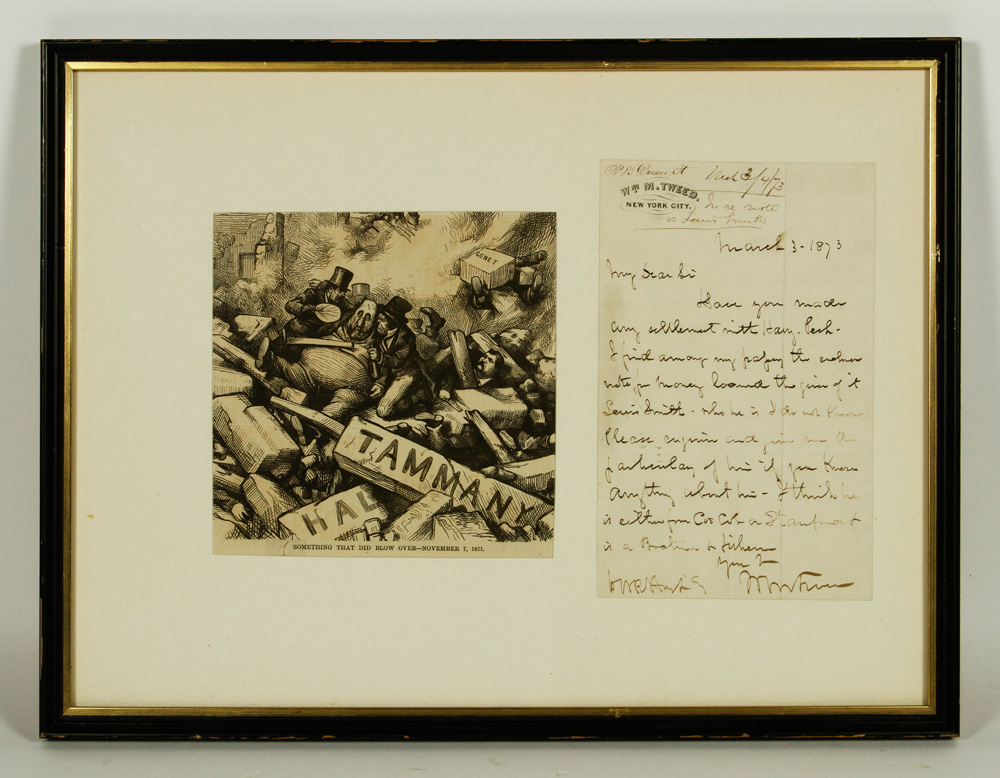 GENET
TAMMANY
HALL
SOMETHING THAT DID BLOW OVER—NOVEMBER 7, 1871.
St
3/4/73
WM. M. TWEED.
NEW YORK CITY.
In re note
Lewis Smith
March 3 - 1873
My Dear Sir
Have you made
any settlement with
I find among my papers the
note for money loaned the giver of it
Lewis Smith - who he is I do not know
Please enquire and give me the
particulars of him if you know
anything about him - I think he
is either from Cos Cob or Stamford &
is a
Yours
Wm M Tweed